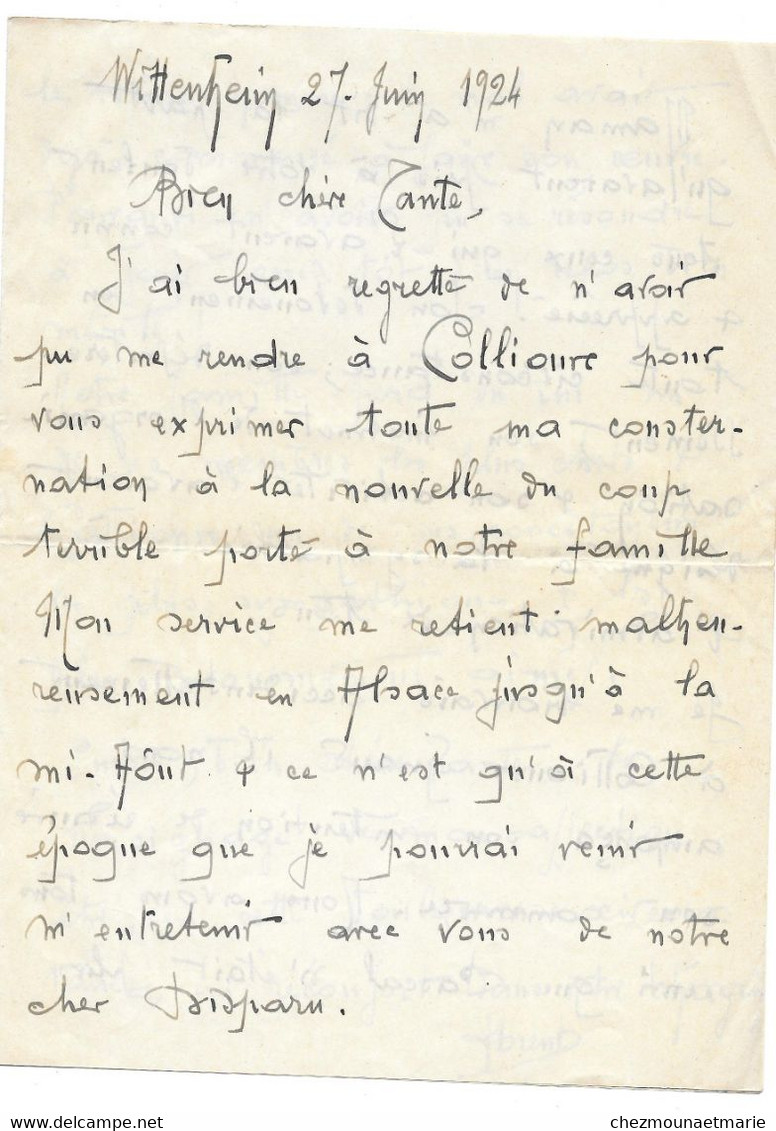 Wittenheim 27. Juin 1924
Bien chère Tante,
J'ai bien regretté de n'avoir
pu me rendre à Collioure pour
vous exprimer toute ma conster-
nation à la nouvelle du coup
terrible porté à notre famille
Mon service me retient malheu-
reusement en Alsace jusqu'à la
mi-Août & ce n'est qu'à cette
époque que je pourrai venir
m'entretenir avec vous de notre
cher Disparu.
chezmounaetmarie